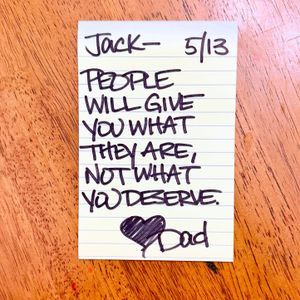 Jack— 5/13
PEOPLE
WILL GIVE
YOU WHAT
THEY ARE,
NOT WHAT
YOU DESERVE.
Dad